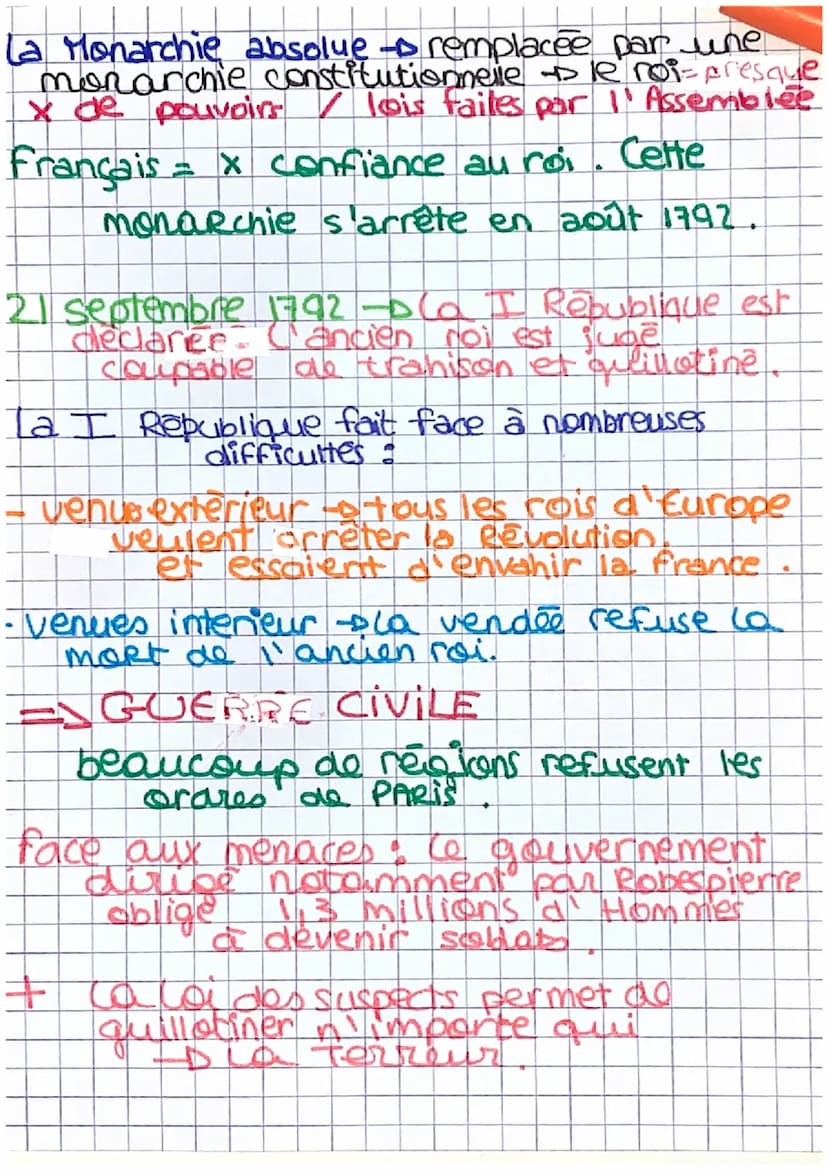 La Monarchie absolue → remplacée par une
monarchie constitutionnelle → le roi = presque
x de pouvoirs / lois faites par l'Assemblée
Français = x confiance au roi. Cette
monarchie s'arrête en août 1792.
21 septembre 1792 → La I République est
déclarée. L'ancien roi est jugé
coupable de trahison et guillotiné.
La I République fait face à nombreuses
difficultés :
- venus extérieur → tous les rois d'Europe
veulent arrêter la Révolution.
et essaient d'envahir la France.
- venues interieur → La vendée refuse la
mort de l'ancien roi.
=> GUERRE CIVILE
beaucoup de régions refusent les
ordres de PARIS.
face aux menaces : Le gouvernement
dirigé notamment par Robespierre
oblige 1,3 millions d'Hommes
à devenir soldats.
+ La Loi des suspects permet de
guillotiner n'importe qui
→ La Terreur.